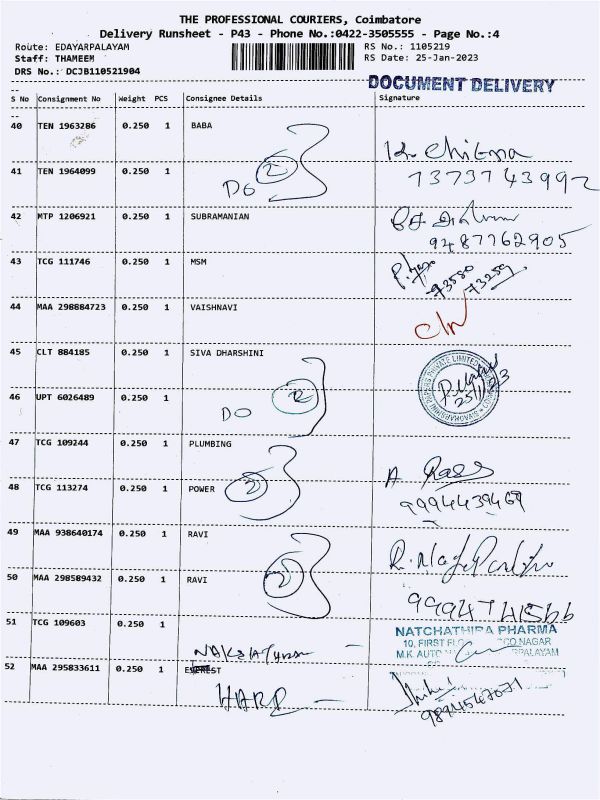 THE PROFESSIONAL COURIERS, Coimbatore
Delivery Runsheet - P43 - Phone No.:0422-3505555 - Page No.:4
Route: EDAYARPALAYAM RS No.: 1105219
Staff: THAMEEM RS Date: 25-Jan-2023
DRS No.: DCJB110521904
DOCUMENT DELIVERY
S No Consignment No Weight PCS Consignee Details Signature
40 TEN 1963286 0.250 1 BABA
K. Chitra
41 TEN 1964099 0.250 1
DO 2
42 MTP 1206921 0.250 1 SUBRAMANIAN
9487762905
43 TCG 111746 0.250 1 MSM
73580 73259
44 MAA 298884723 0.250 1 VAISHNAVI
45 CLT 884185 0.250 1 SIVA DHARSHINI
25/1/23
46 UPT 6026489 0.250 1
DO 2
47 TCG 109244 0.250 1 PLUMBING
48 TCG 113274 0.250 1 POWER 2
A
9994439469
49 MAA 938640174 0.250 1 RAVI
50 MAA 298589432 0.250 1 RAVI 2
9994741566
51 TCG 109603 0.250 1
NATCHATHIRA PHARMA
10, FIRST
NAGAR
M.K.
52 MAA 295833611 0.250 1
9894567071